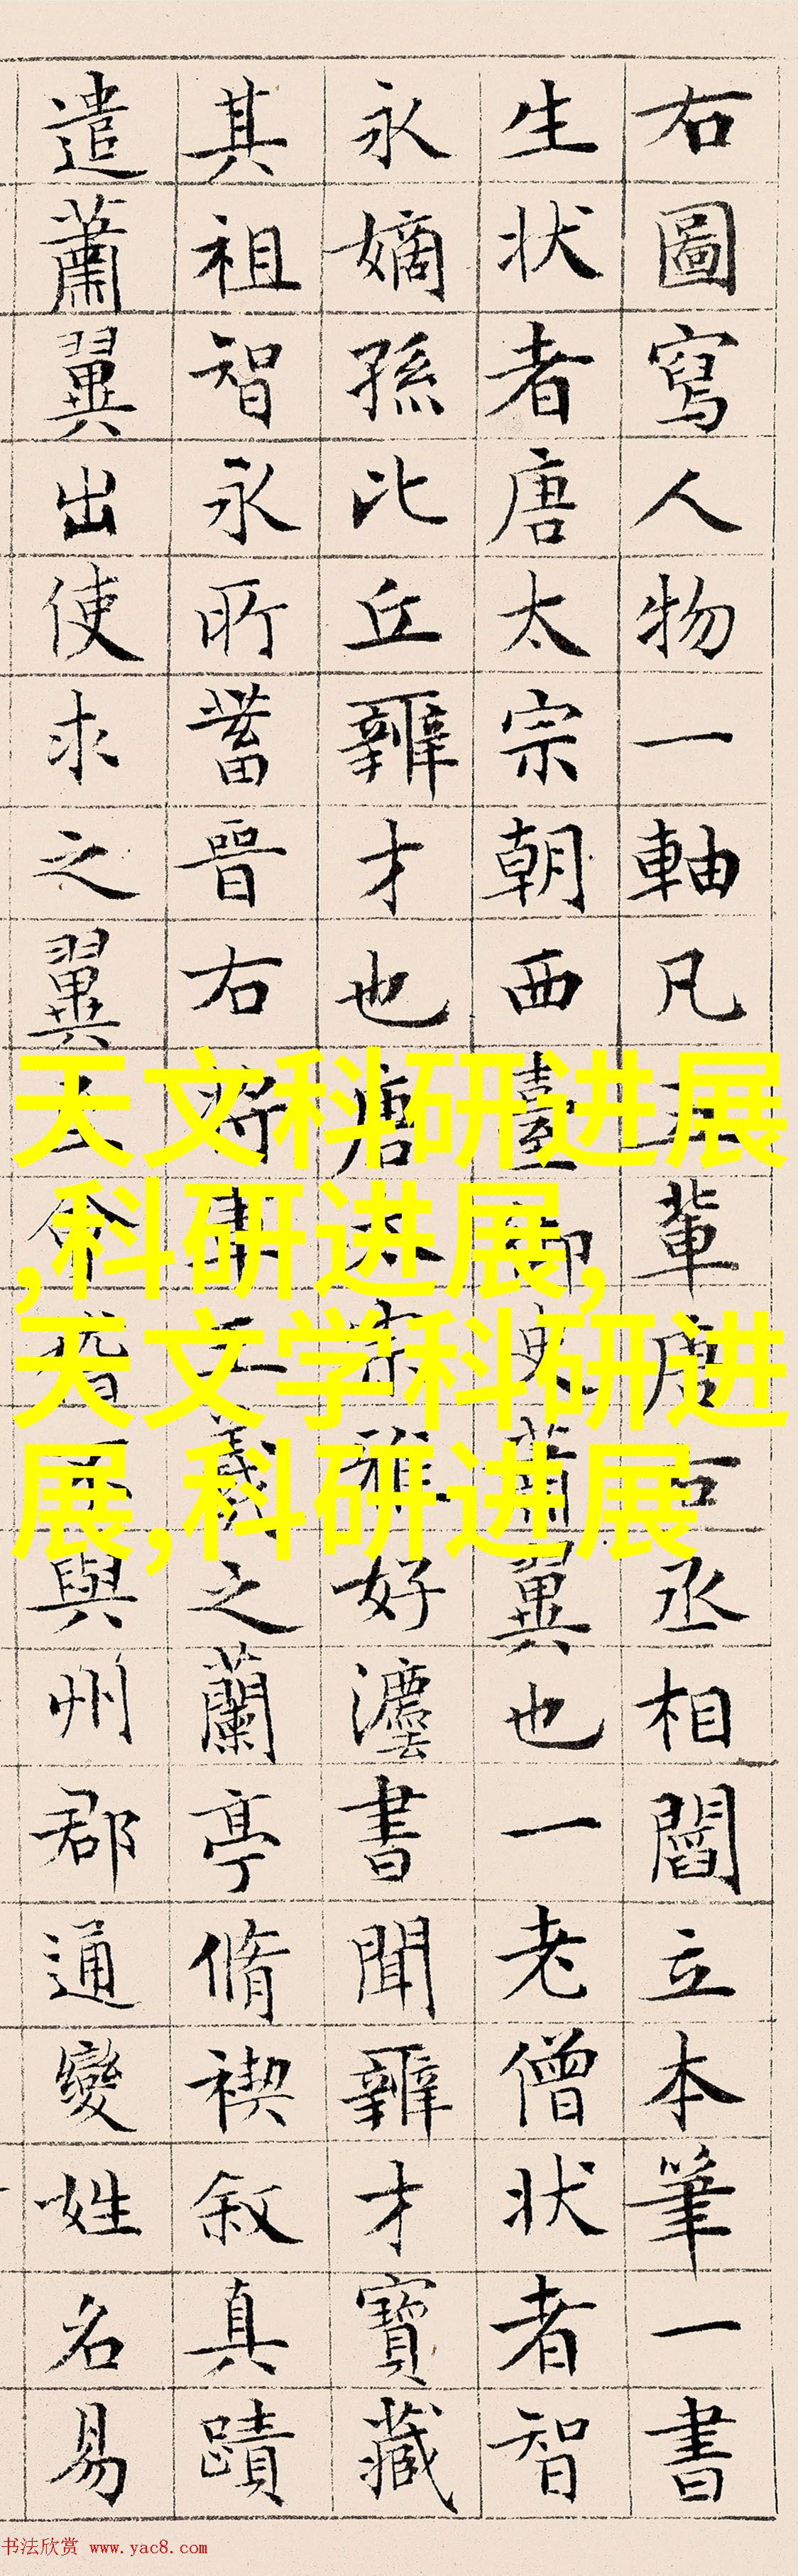 右圖寫人物一軸凡五輩唐右丞相閻立本筆一書
生狀者唐太宗朝西臺御史蕭翼也一老僧狀者智
永嫡孫比丘辯才也唐太宗雅好灋書聞辯才寶藏
其祖智永所蓄晉右將軍王羲之蘭亭脩禊叙真蹟
遣蕭翼出使求之翼至會稽不與州郡通變姓名易
天文科研进展
,科研进展,
天文学科研进
展,科研进展
书法欣赏 www.yac8.com